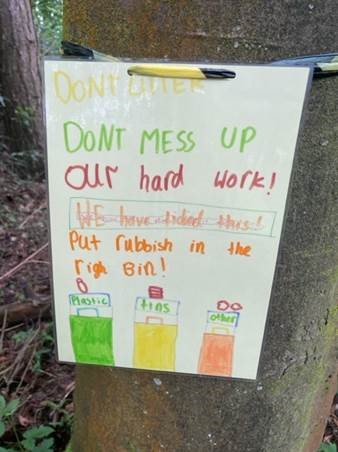 DONT LITTER
DONT MESS UP
our hard work!
WE have tided this!
Put rubbish in the
righ Bin!
Plastic
tins
other